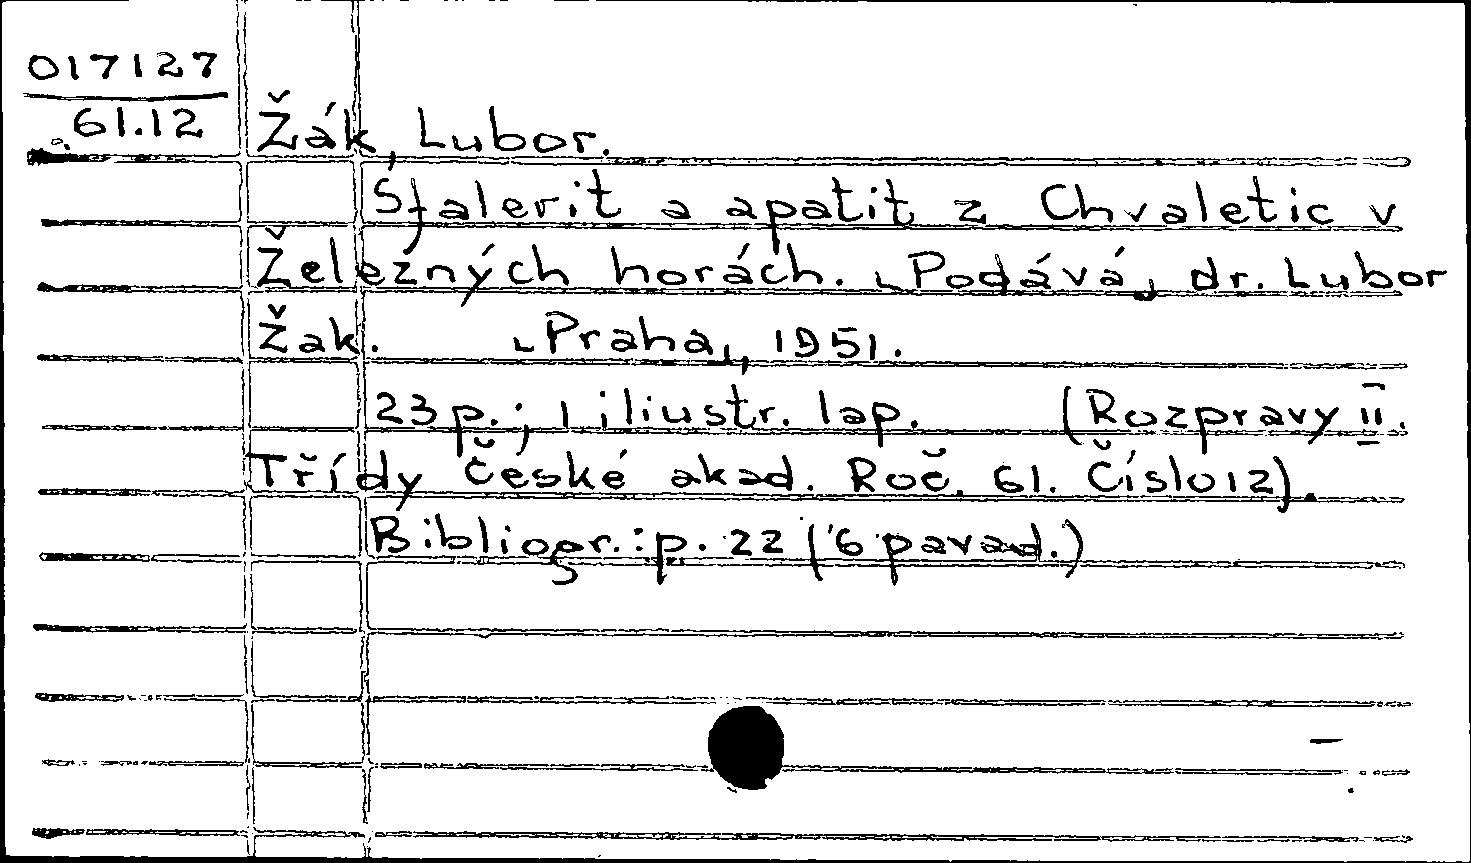 017127
61.12
Žák, Lubor.
Sfalerit a apatit z Chvaletic v
Železných horách. [Podává] dr. Lubor
Žak. [Praha], 1951.
23 p.; 1 iliustr. lap. (Rozpravy II.
Třídy České akad. Roč. 61. Číslo 12).
Bibliogr.: p. 22 (6 pavad.)